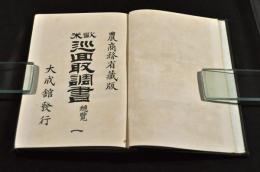 農商務省藏版
歐米
巡回取調書
總覽
一
大成館發行